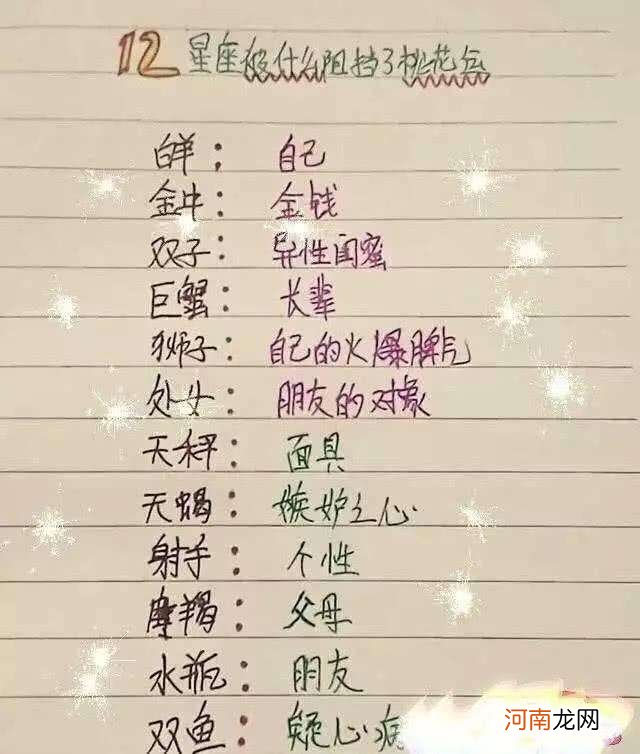 12星座被什么阻挡了桃花运
白羊： 自己
金牛： 金钱
双子： 异性闺蜜
巨蟹： 长辈
狮子： 自己的火爆脾气
处女： 朋友的对象
天秤： 面具
天蝎： 嫉妒之心
射手： 个性
摩羯： 父母
水瓶： 朋友
双鱼： 疑心病
河南龙网